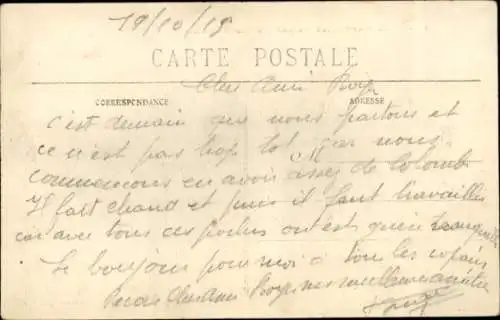 19/10/15
CARTE POSTALE
Cher Ami Roger
CORRESPONDANCE
ADRESSE
c'est demain que nous partons et
ce n'est pas trop tot car nous
M
commencons en avoir assez de Colomb
Il fait chaud et puis il faut travailler
car avec tous ces poilus on est guère tranquille
Le bonjour pour moi a tous les copains
Recois Cher Ami Roger mes meilleures amitiés